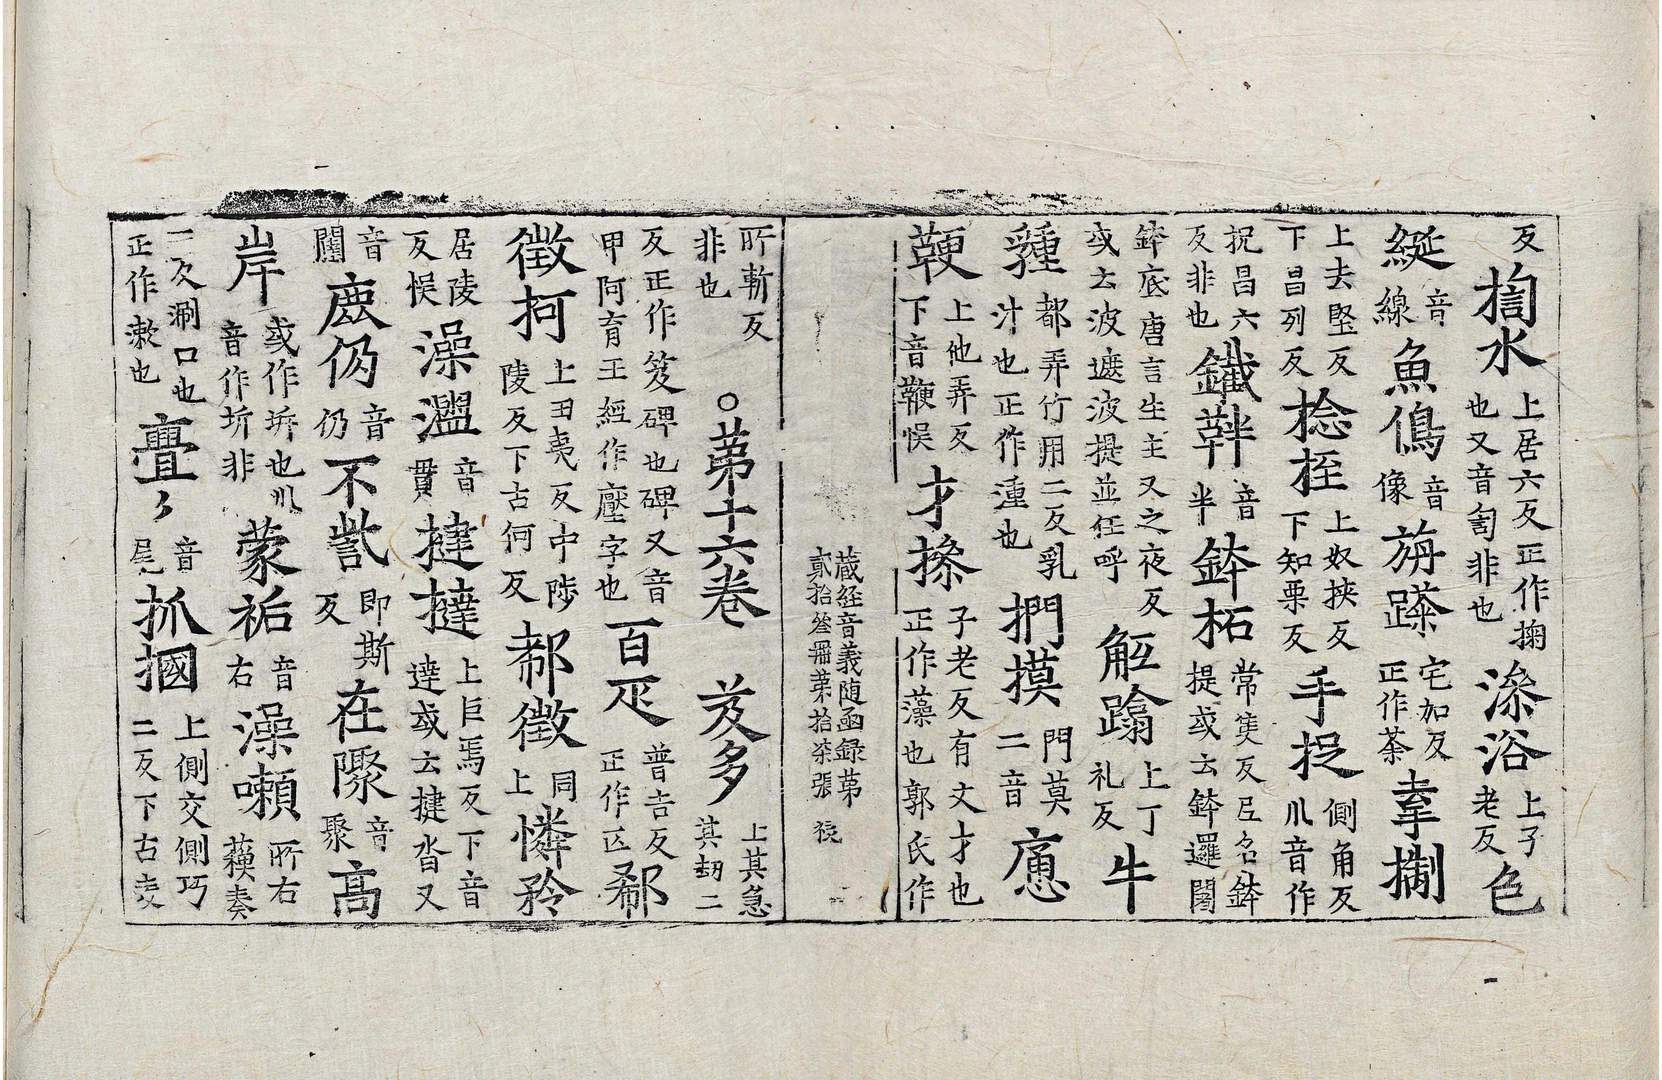 反掬水上居六反正作掬也又音匋非也澡浴上子老反色
綖音線魚㑄音像䒟䠕宅加反正作荼㓻𢵧
上去堅反下昌列反捻桎上奴挾反下知栗反手捉側角反爪音作
抳昌六反非也鐵靽音半鉢柘常隻反后名鉢提或云鉢邏闍
鉢底唐言生主又之夜反或云波遮波提並徃呼觝蹹上丁礼反牛
㹱都弄竹用二反乳汁也正作湩也捫摸門莫二音瘜
鞕上他弄反下音鞭悮才㨷子老反有文才也正作藻也郭氏作
藏経音義随函録第
貳拾叄冊第拾柒張 㑨
所斬反非也○苐十六卷芨多上其急其刼二
反正作笈碑也碑又音甲阿育王經作壓字也百疋普吉反正作匹郗
徵柯上丑夷反中陟陵反下古何反郗徵上同憐矜
居陵反悮澡盥音貫揵撻上巨焉反下音達或云揵沓又
音闥鹿仭音仍不訾即斯反在聚音聚高
岸或作𡊋也爪音作圻非蒙祐音右澡嗽所右蘓奏
二反涮口也正作漱也亹〻音尾抓摑上側交側巧二反下古麦